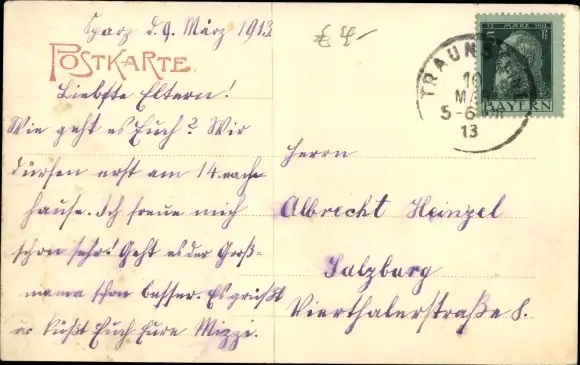 Sparz d. 9. März 1913
POSTKARTE.
Liebste Eltern!
Wie geht es Euch? Wir
dürfen erst am 14. nach
hause. Ich freue mich
schon sehr! Geht es der Groß-
mama schon besser. Es grüßt
u. küßt Euch Eure Mizzi.
TRAUNSTEIN
10
MÄR
5-6 NM
13
5
BAYERN
Herrn
Albrecht Heinzel
Salzburg
Vierthalerstraße 8.